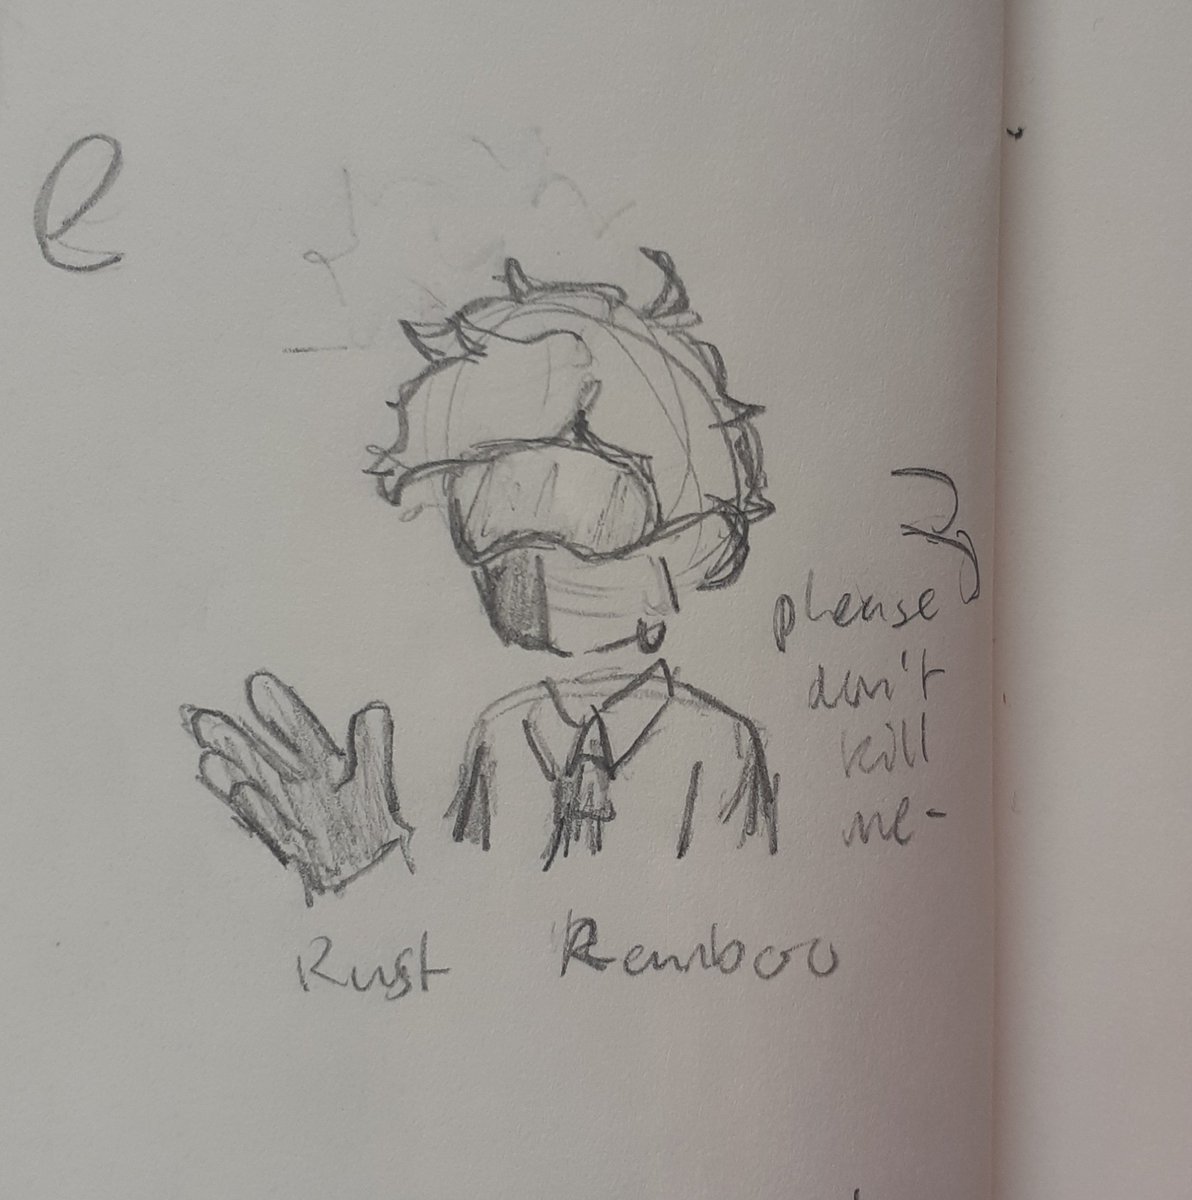 e
please
don't
kill
me-
Rust Ranboo